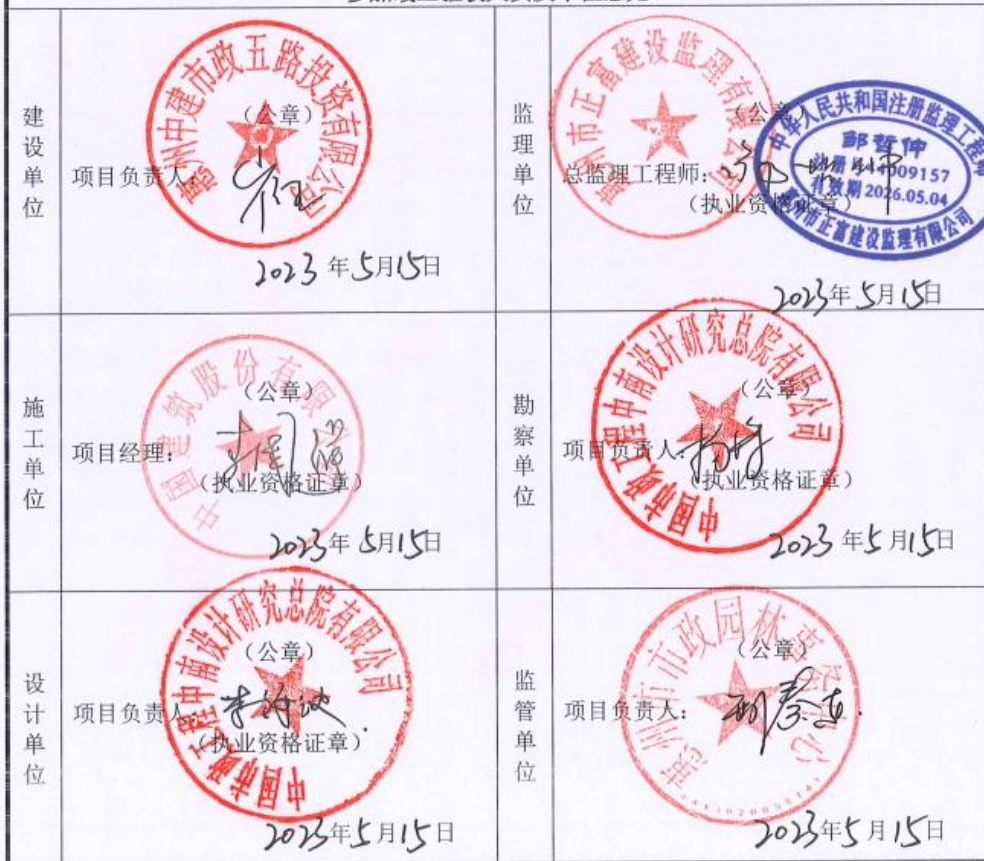 建设单位
惠州中建市政五路投资有限公司
(公章)
项目负责人:
2023年5月15日
监理单位
惠州市正富建设监理有限公司
(公章)
总监理工程师:
(执业资格证章)
中华人民共和国注册监理工程师
邹哲伸
有效期 2026.05.04
惠州市正富建设监理有限公司
2023年5月15日
施工单位
中国建筑股份有限
(公章)
项目经理:
(执业资格证章)
2023年5月15日
勘察单位
中国市政工程中南设计研究总院有限公司
(公章)
项目负责人:
(执业资格证章)
2023年5月15日
设计单位
中国市政工程中南设计研究总院有限公司
(公章)
项目负责人:
(执业资格证章)
2023年5月15日
监管单位
惠州市市政园林
中心
(公章)
项目负责人:
2023年5月15日